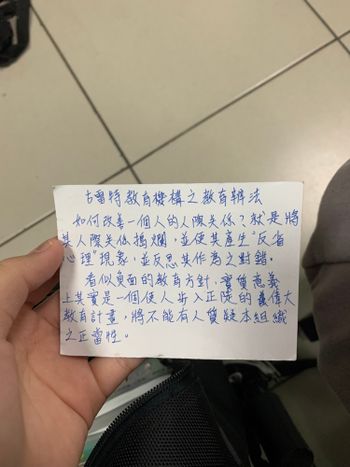 古雷特教育機構之教育辦法
如何改善一個人的人際关係？就是將
其人際关係搗爛，並使其產生"反省
心理"現象，並反思其作為之對錯。
看似負面的教育方針，實質意義
上其實是一個使人步入正院的最偉大
教育計畫，將不能有人質疑本組織
之正當性。